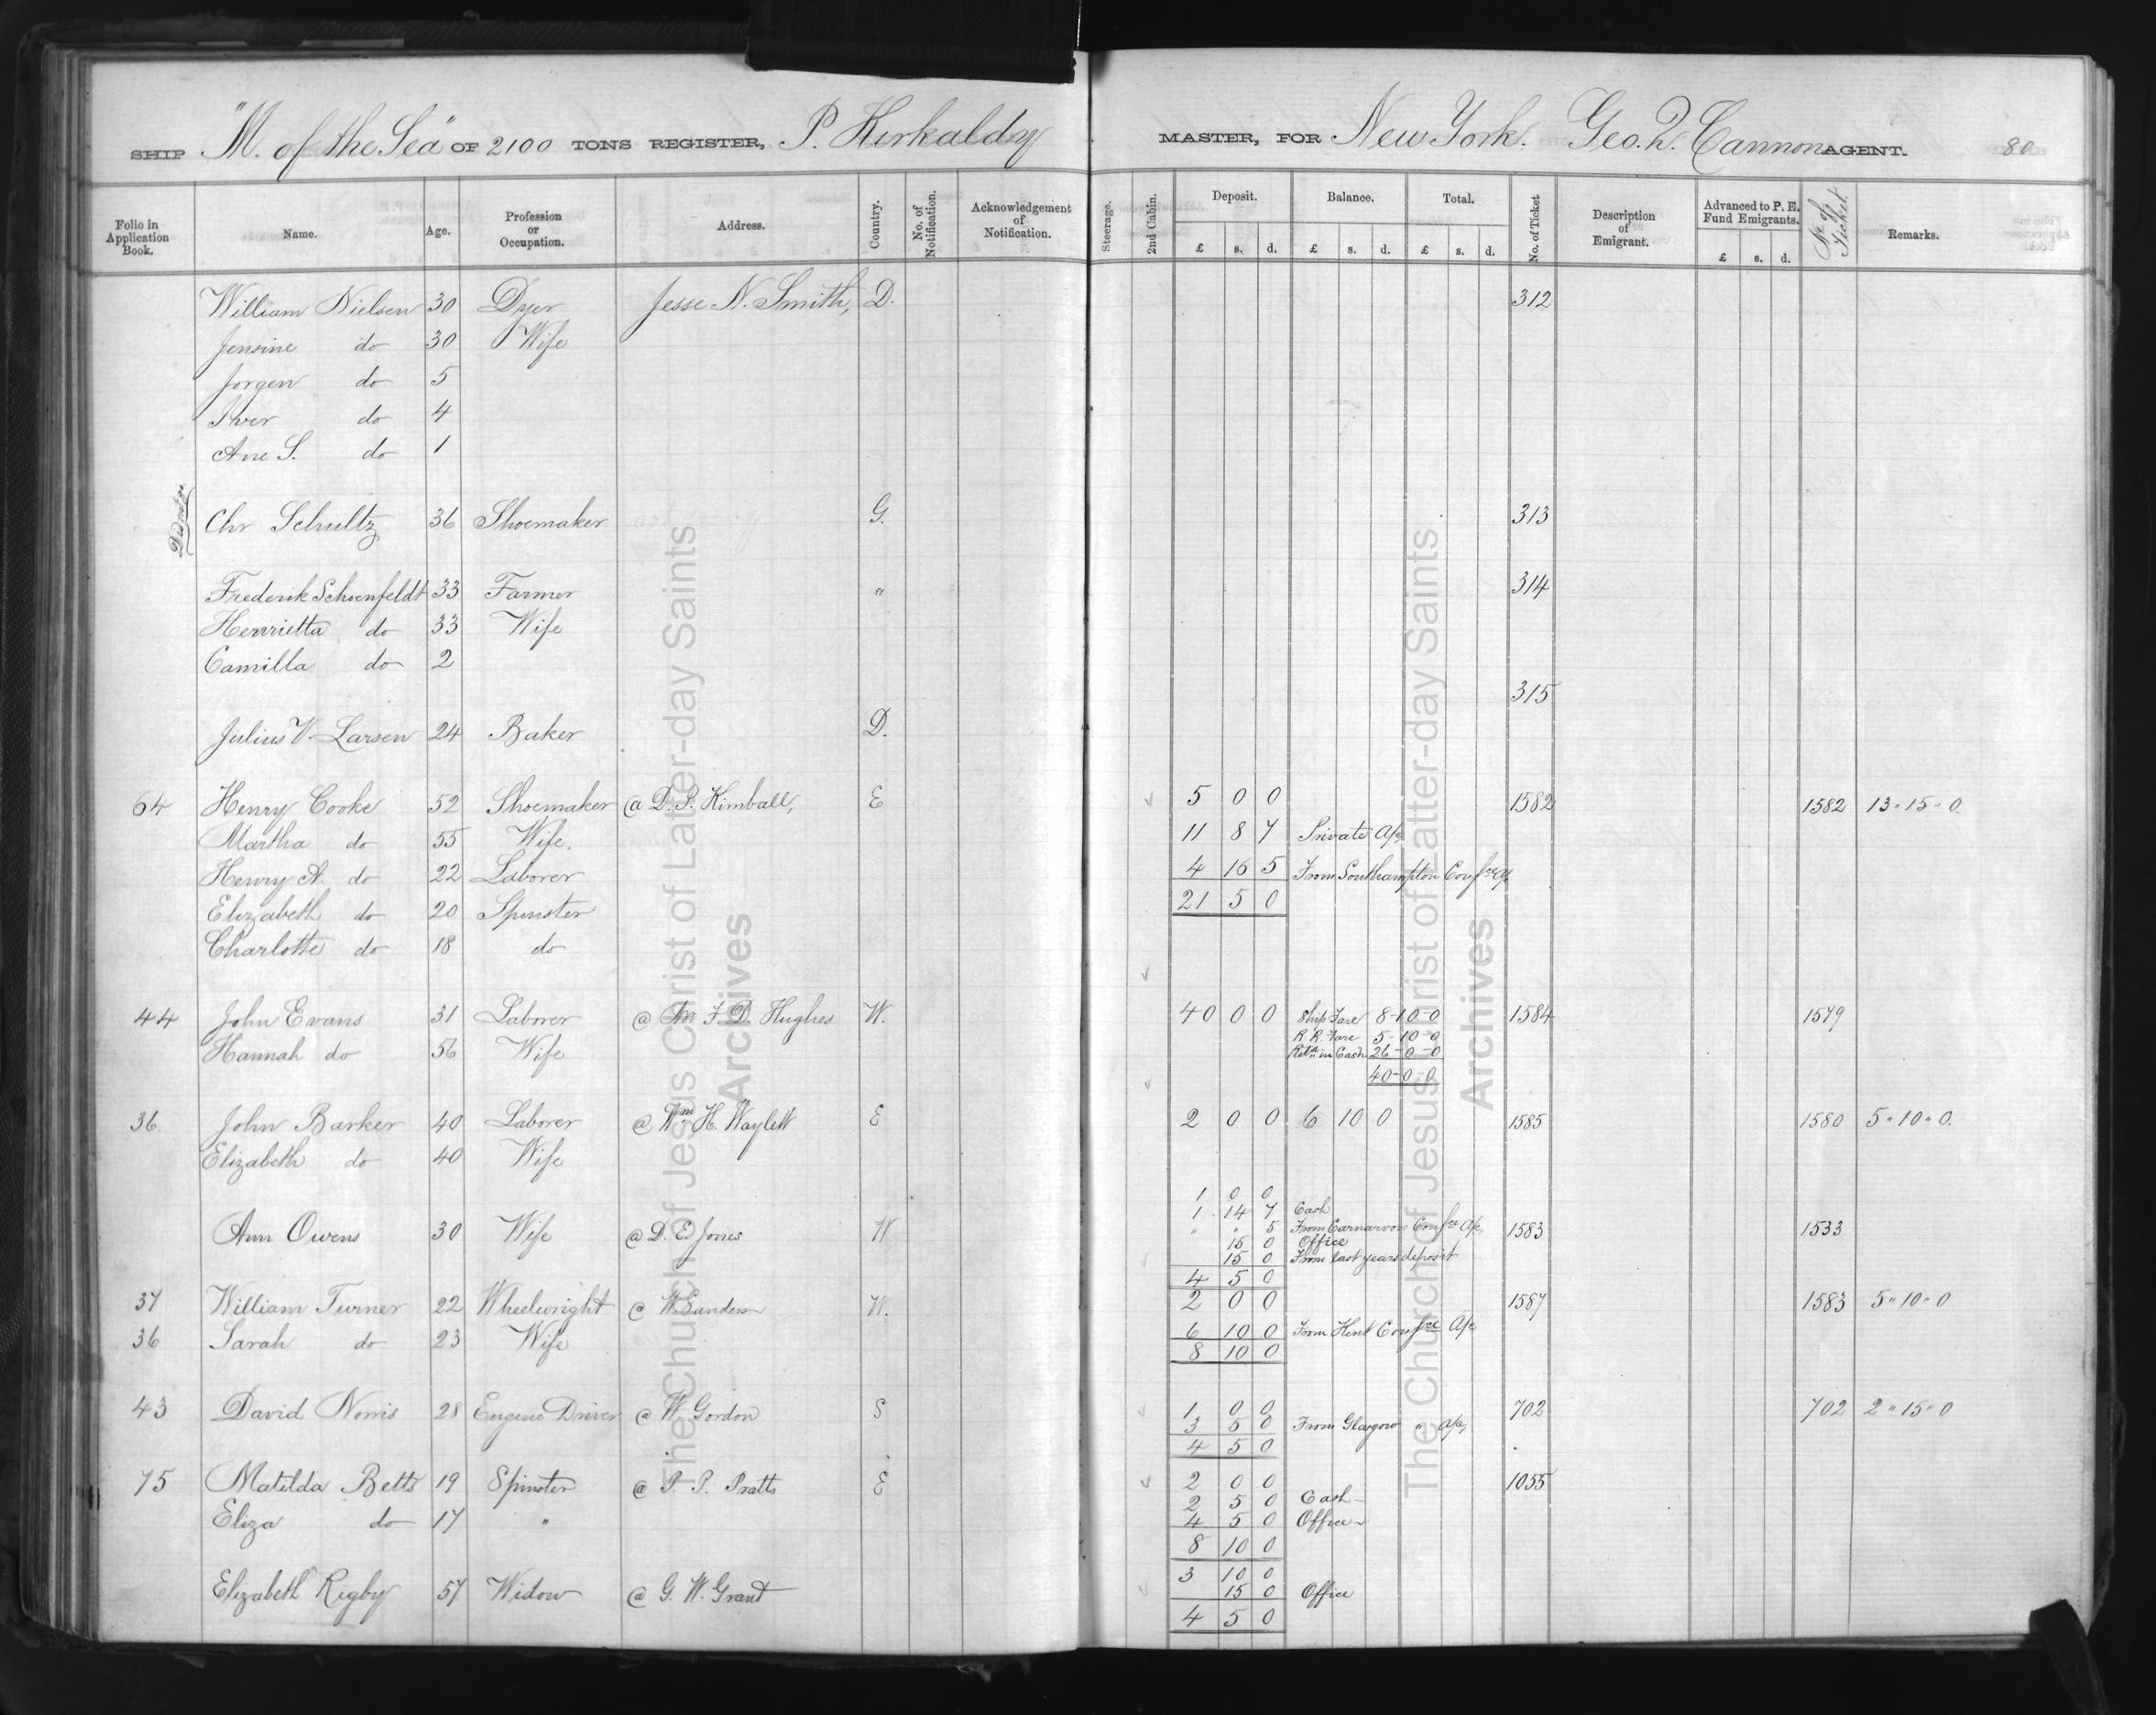 SHIP "M. of the Sea" OF 2100 TONS REGISTER, P. Kirkaldy MASTER, FOR New York. Geo. Q. Cannon AGENT. 80
Folio in Application Book. Name. Age. Profession or Occupation. Address. Country. No. of Notification. Acknowledgement of Notification. Steerage. 2nd Cabin. Deposit. £ s. d. Balance. £ s. d. Total. £ s. d. No. of Ticket Description of Emigrant. Advanced to P. E. Fund Emigrants. £ s. d. No of Ticket Remarks.
William Nielsen 30 Dyer Jesse N. Smith, D. 312
Jensine do 30 Wife
Jorgen do 5
Iver do 4
Ane S. do 1
Chr Schultz 36 Shoemaker G. 313
Frederik Schoenfeldt 33 Farmer " 314
Henrietta do 33 Wife
Camilla do 2
315
Julius V. Larsen 24 Baker D.
64 Henry Cooke 52 Shoemaker @ D. P. Kimball, E 5 0 0 1582 1582 13 " 15 " 0
Martha do 55 Wife. 11 8 7 Private a/c
Henry A. do 22 Laborer 4 16 5 From Southampton Confce a/c
Elizabeth do 20 Spinster 21 5 0
Charlotte do 18 do
44 John Evans 31 Laborer @ F. D. Hughes W. 40 0 0 Ship Fare 8-10-0 1584 1579
Hannah do 56 Wife R. R. Fare 5-10-0
Retd in Cash 26-0-0
40-0-0
36. John Barker 40 Laborer @ Wm H. Waylett E 2 0 0 6 10 0 1585 1580 5 " 10 " 0.
Elizabeth do 40 Wife
1 0 0
1 14 7 Cash
Ann Owens 30 Wife @ D. E. Jones W " " 5 From Carnarvon Confce a/c 1583 1533
15 0 Office
15 0 From last years deposit
4 5 0
37 William Turner 22 Wheelwright @ W. Sanders W. 2 0 0 1587 1583 5 " 10 " 0
36 Sarah do 23 Wife 6 10 0 From Kent Confce a/c
8 10 0
43 David Norris 28 Engine Driver @ W Gordon S 1 0 0 702 702 2 " 15 " 0
3 5 0 From Glasgow " a/c,
4 5 0
75 Matilda Betts 19 Spinster @ P. P. Pratts E 2 0 0 1055
2 5 0 Cash
Eliza do 17 " 4 5 0 Office
8 10 0
3 10 0
Elizabeth Rigby 57 Widow @ G. W. Grant 15 0 Office
4 5 0
The Church of Jesus Christ of Latter-day Saints
Archives
The Church of Jesus Christ of Latter-day Saints
Archives